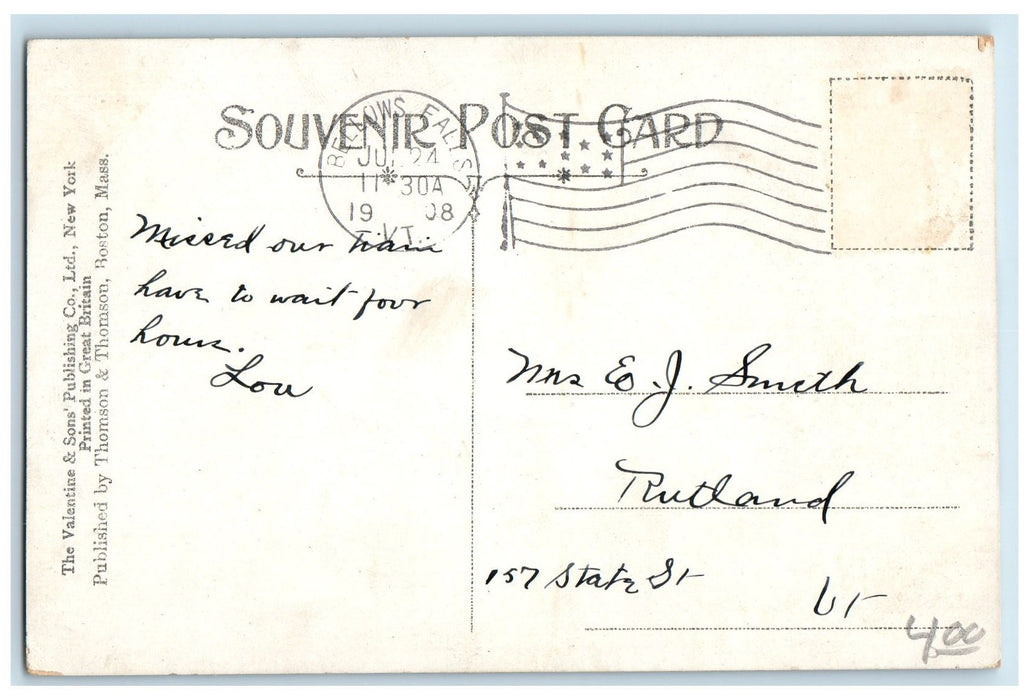 SOUVENIR POST CARD
BELLOWS FALLS
JUL 24
11 30A
19 08
VT.
The Valentine & Sons' Publishing Co., Ltd., New York
Printed in Great Britain
Published by Thomson & Thomson, Boston, Mass.
Missed our train
have to wait four
hours.
Lou
Mrs E. J. Smith
Rutland
157 State St
Vt
4.00